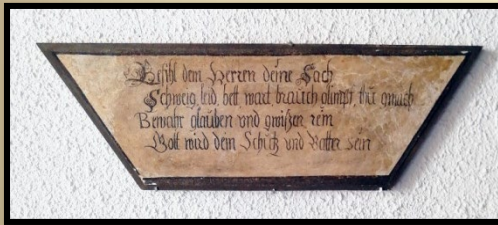 Befihl dem Herren deine Sach
Schweig, leid, bett, wart, brauch glimpf, thue gmach
Bewahr glauben und gwüßen rein
Gott wird dein Schütz und Vatter sein